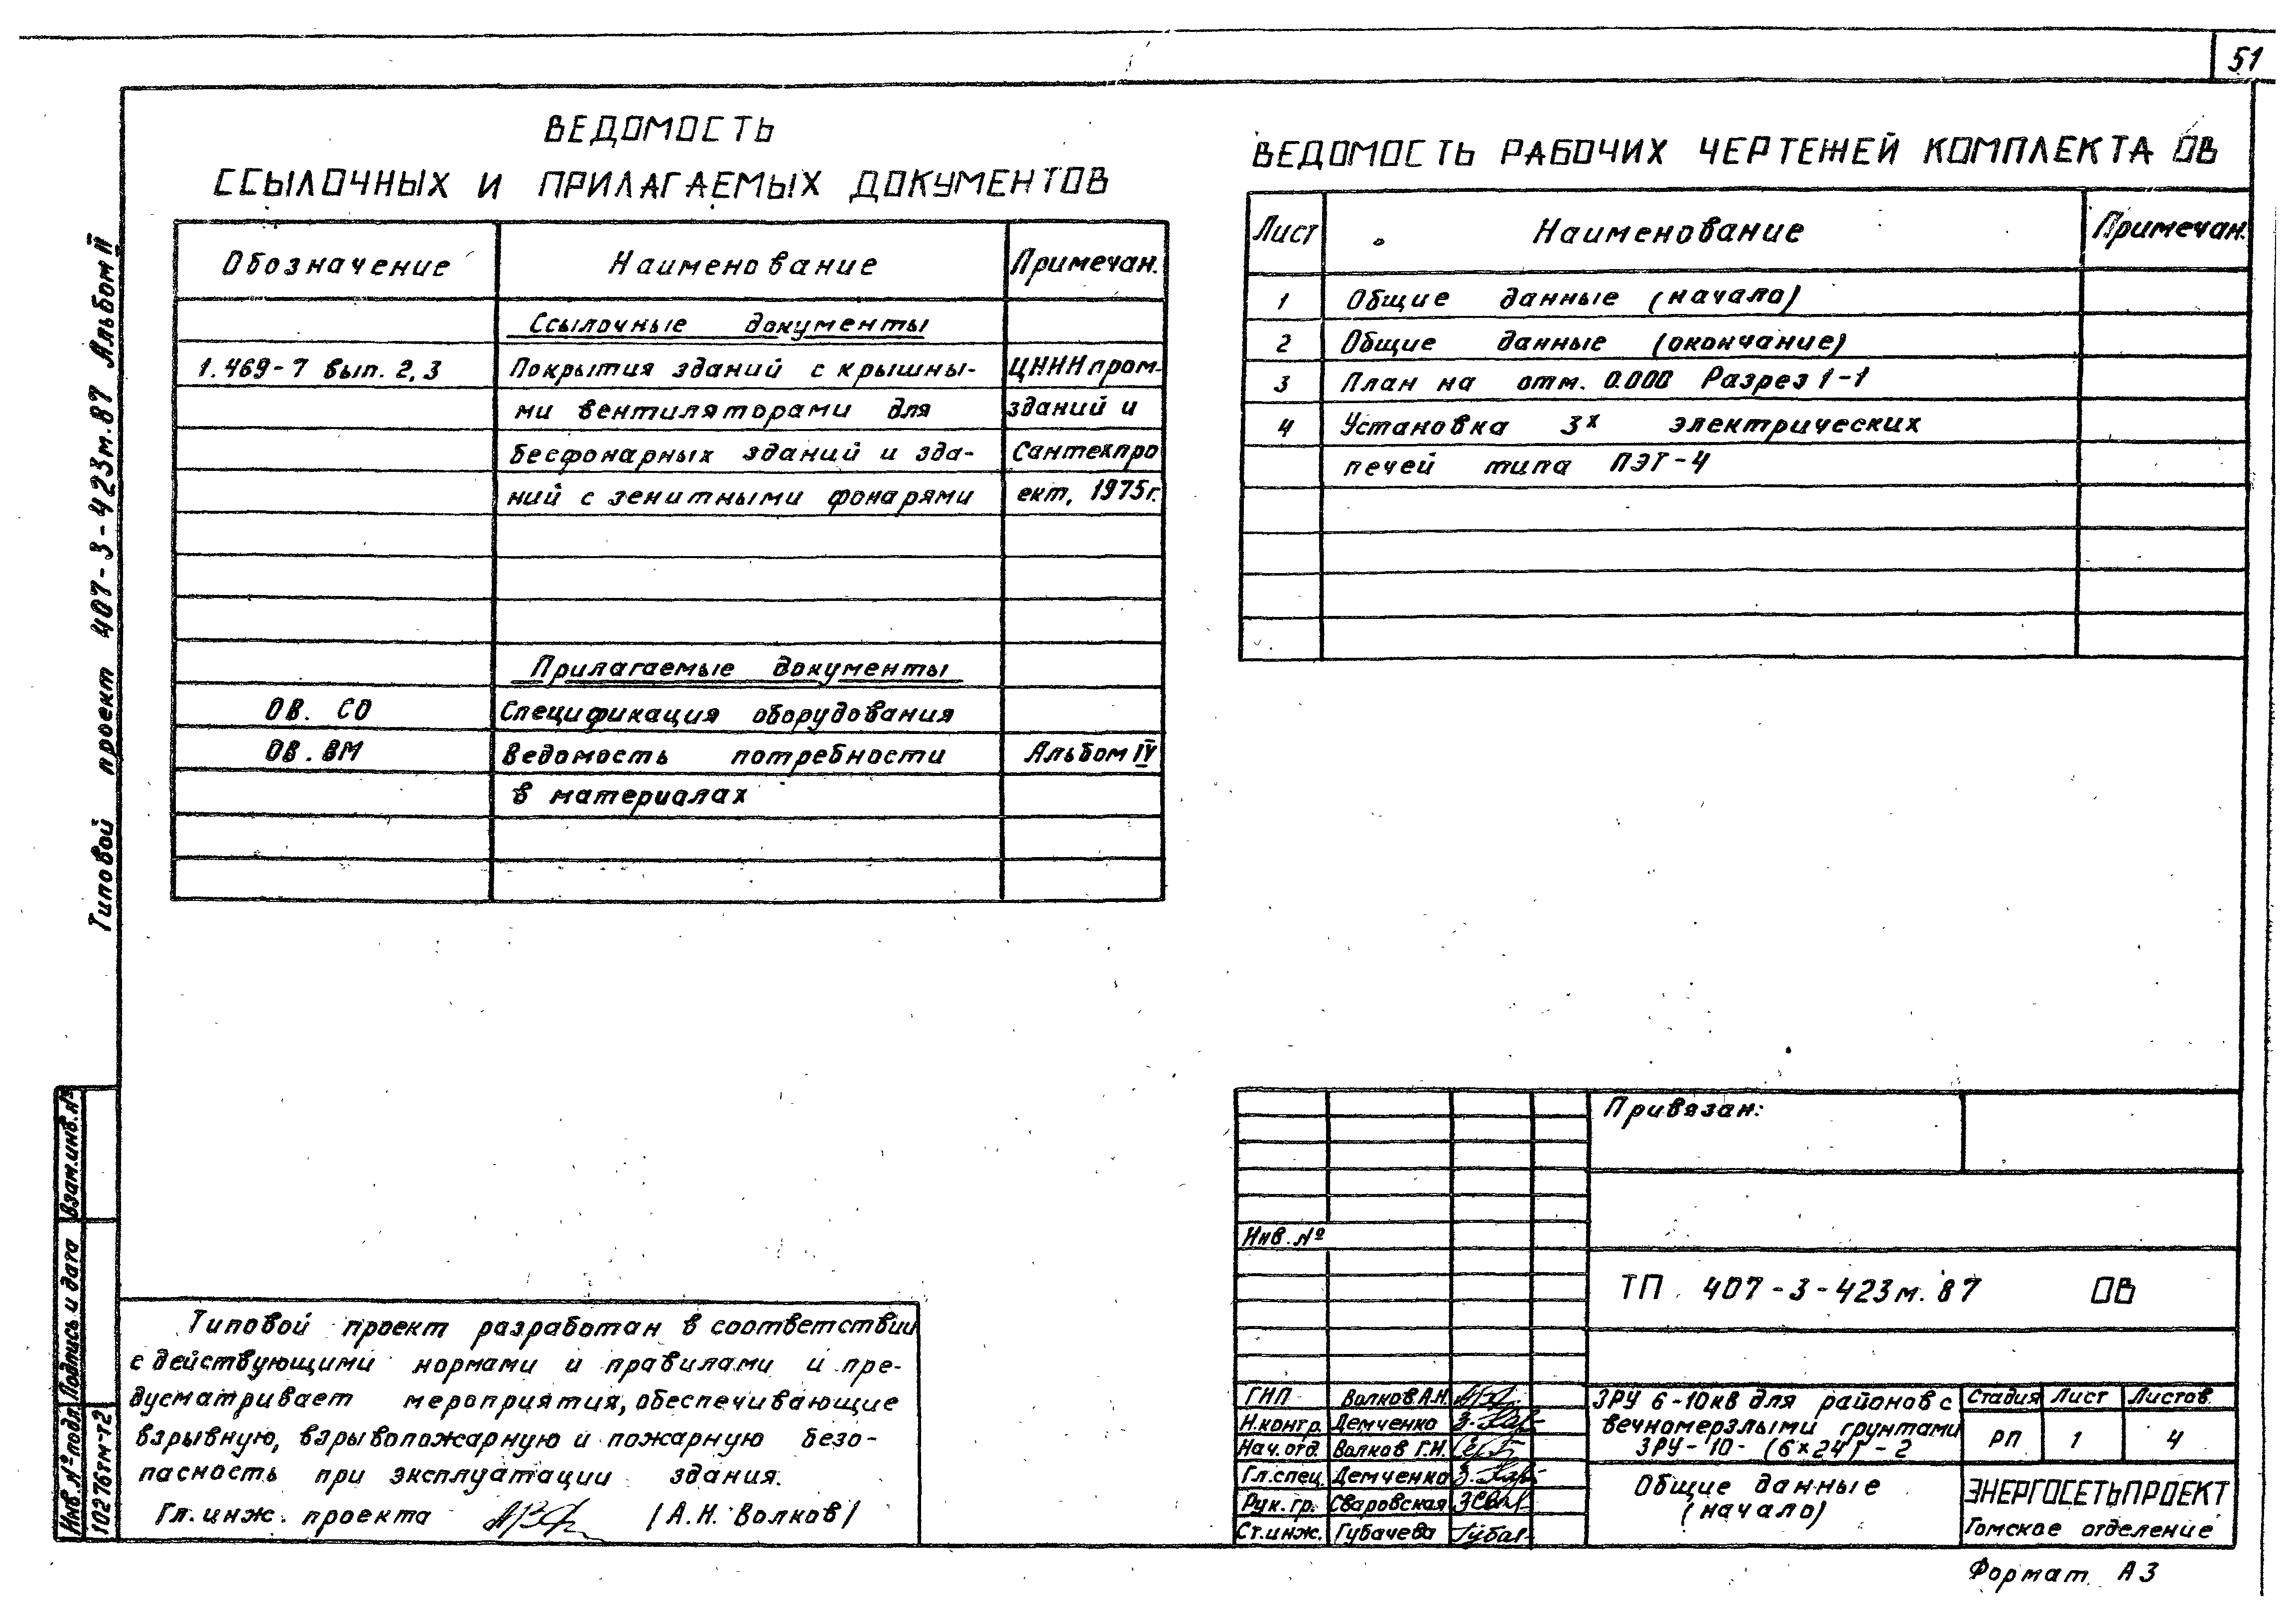 51
ВЕДОМОСТЬ
ССЫЛОЧНЫХ И ПРИЛАГАЕМЫХ ДОКУМЕНТОВ
Обозначение Наименование Примечан.
Ссылочные документы
1.469-7 вып. 2,3 Покрытия зданий с крышны- ЦНИИпром-
ми вентиляторами для зданий и
бесфонарных зданий и зда- Сантехпро
ний с зенитными фонарями ект, 1975г.
Прилагаемые документы
ОВ. СО Спецификация оборудования
ОВ. ВМ Ведомость потребности Альбом IV
в материалах
ВЕДОМОСТЬ РАБОЧИХ ЧЕРТЕЖЕЙ КОМПЛЕКТА ОВ
Лист Наименование Примечан.
1 Общие данные (начало)
2 Общие данные (окончание)
3 План на отм. 0.000 Разрез 1-1
4 Установка 3х электрических
печей типа ПЭТ-4
Типовой проект 407-3-423м.87 Альбом II
Взам.инв.№
Подпись и дата
Инв.№ подл.
10276тм-т2
Типовой проект разработан в соответствии
с действующими нормами и правилами и пре-
дусматривает мероприятия, обеспечивающие
взрывную, взрывопожарную и пожарную безо-
пасность при эксплуатации здания.
Гл. инж. проекта (А.Н. Волков)
Привязан:
Инв. №
ТП 407-3-423м.87 ОВ
ГИП Волков А.Н.
Н.контр. Демченко
Нач.отд. Волков Г.И.
Гл.спец. Демченко
Рук.гр. Сваровская
Ст.инж. Губачева
ЗРУ 6-10кВ для районов с
вечномерзлыми грунтами
ЗРУ-10-(6×24)Г-2
Стадия Лист Листов
РП 1 4
Общие данные
(начало)
ЭНЕРГОСЕТЬПРОЕКТ
Томское отделение
Формат А3